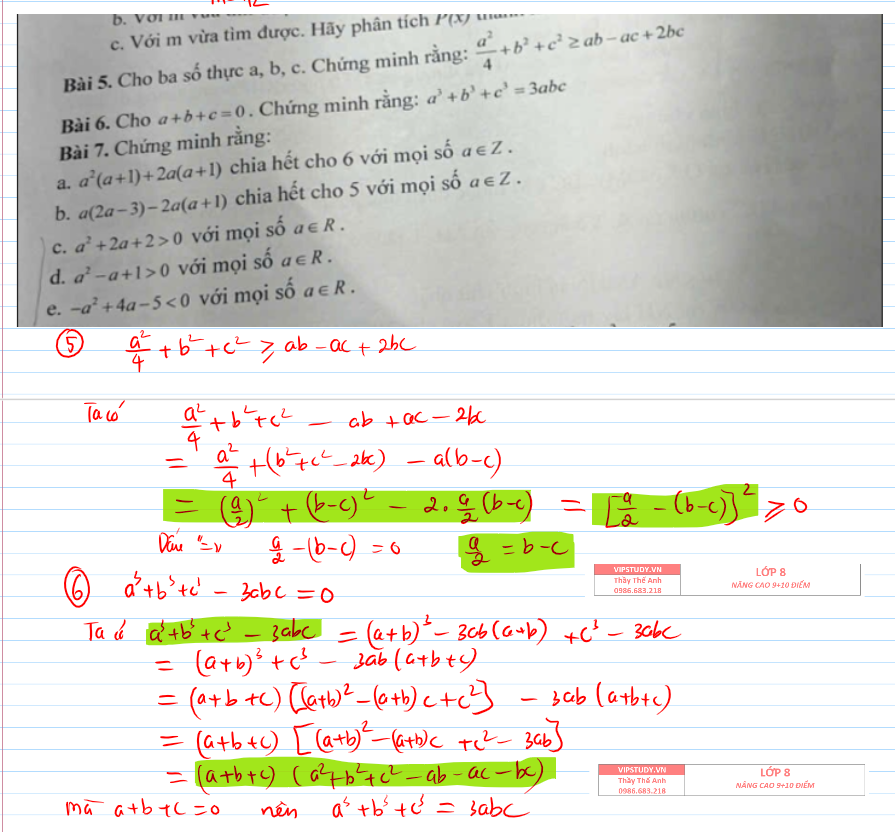 b. Với m
c. Với m vừa tìm được. Hãy phân tích P(x)
Bài 5. Cho ba số thực a, b, c. Chứng minh rằng: a²/4 + b² + c² ≥ ab − ac + 2bc
Bài 6. Cho a + b + c = 0. Chứng minh rằng: a³ + b³ + c³ = 3abc
Bài 7. Chứng minh rằng:
a. a²(a+1) + 2a(a+1) chia hết cho 6 với mọi số a ∈ Z.
b. a(2a−3) − 2a(a+1) chia hết cho 5 với mọi số a ∈ Z.
c. a² + 2a + 2 > 0 với mọi số a ∈ R.
d. a² − a + 1 > 0 với mọi số a ∈ R.
e. −a² + 4a − 5 < 0 với mọi số a ∈ R.
⑤ a²/4 + b² + c² ≥ ab − ac + 2bc
Ta có a²/4 + b² + c² − ab + ac − 2bc
= a²/4 + (b² + c² − 2bc) − a(b−c)
= (a/2)² + (b−c)² − 2·a/2(b−c) = [a/2 − (b−c)]² ≥ 0
Dấu "=" a/2 − (b−c) = 0 a/2 = b−c
VIPSTUDY.VN
Thầy Thế Anh
0986.683.218
LỚP 8
NÂNG CAO 9+10 ĐIỂM
⑥ a³ + b³ + c³ − 3abc = 0
Ta có a³ + b³ + c³ − 3abc = (a+b)³ − 3ab(a+b) + c³ − 3abc
= (a+b)³ + c³ − 3ab(a+b+c)
= (a+b+c)[(a+b)² − (a+b)c + c²] − 3ab(a+b+c)
= (a+b+c)[(a+b)² − (a+b)c + c² − 3ab]
= (a+b+c)(a² + b² + c² − ab − ac − bc)
VIPSTUDY.VN
Thầy Thế Anh
0986.683.218
LỚP 8
NÂNG CAO 9+10 ĐIỂM
mà a+b+c = 0 nên a³ + b³ + c³ = 3abc